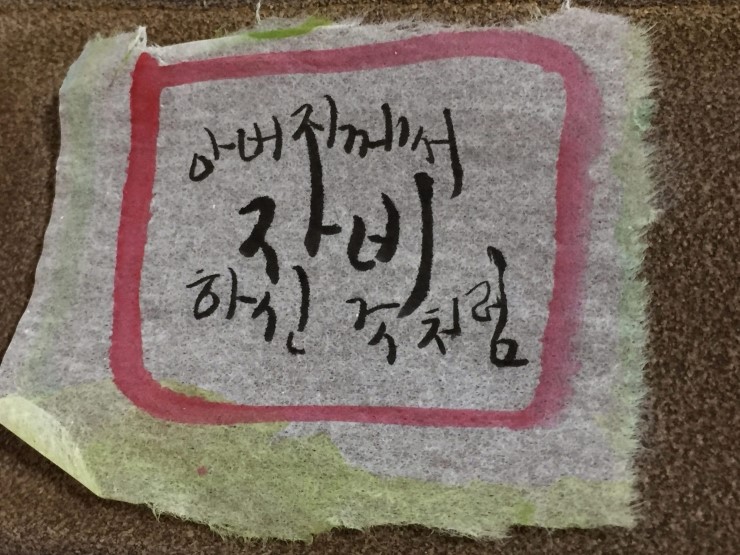 아버지께서
자비
하신 것처럼